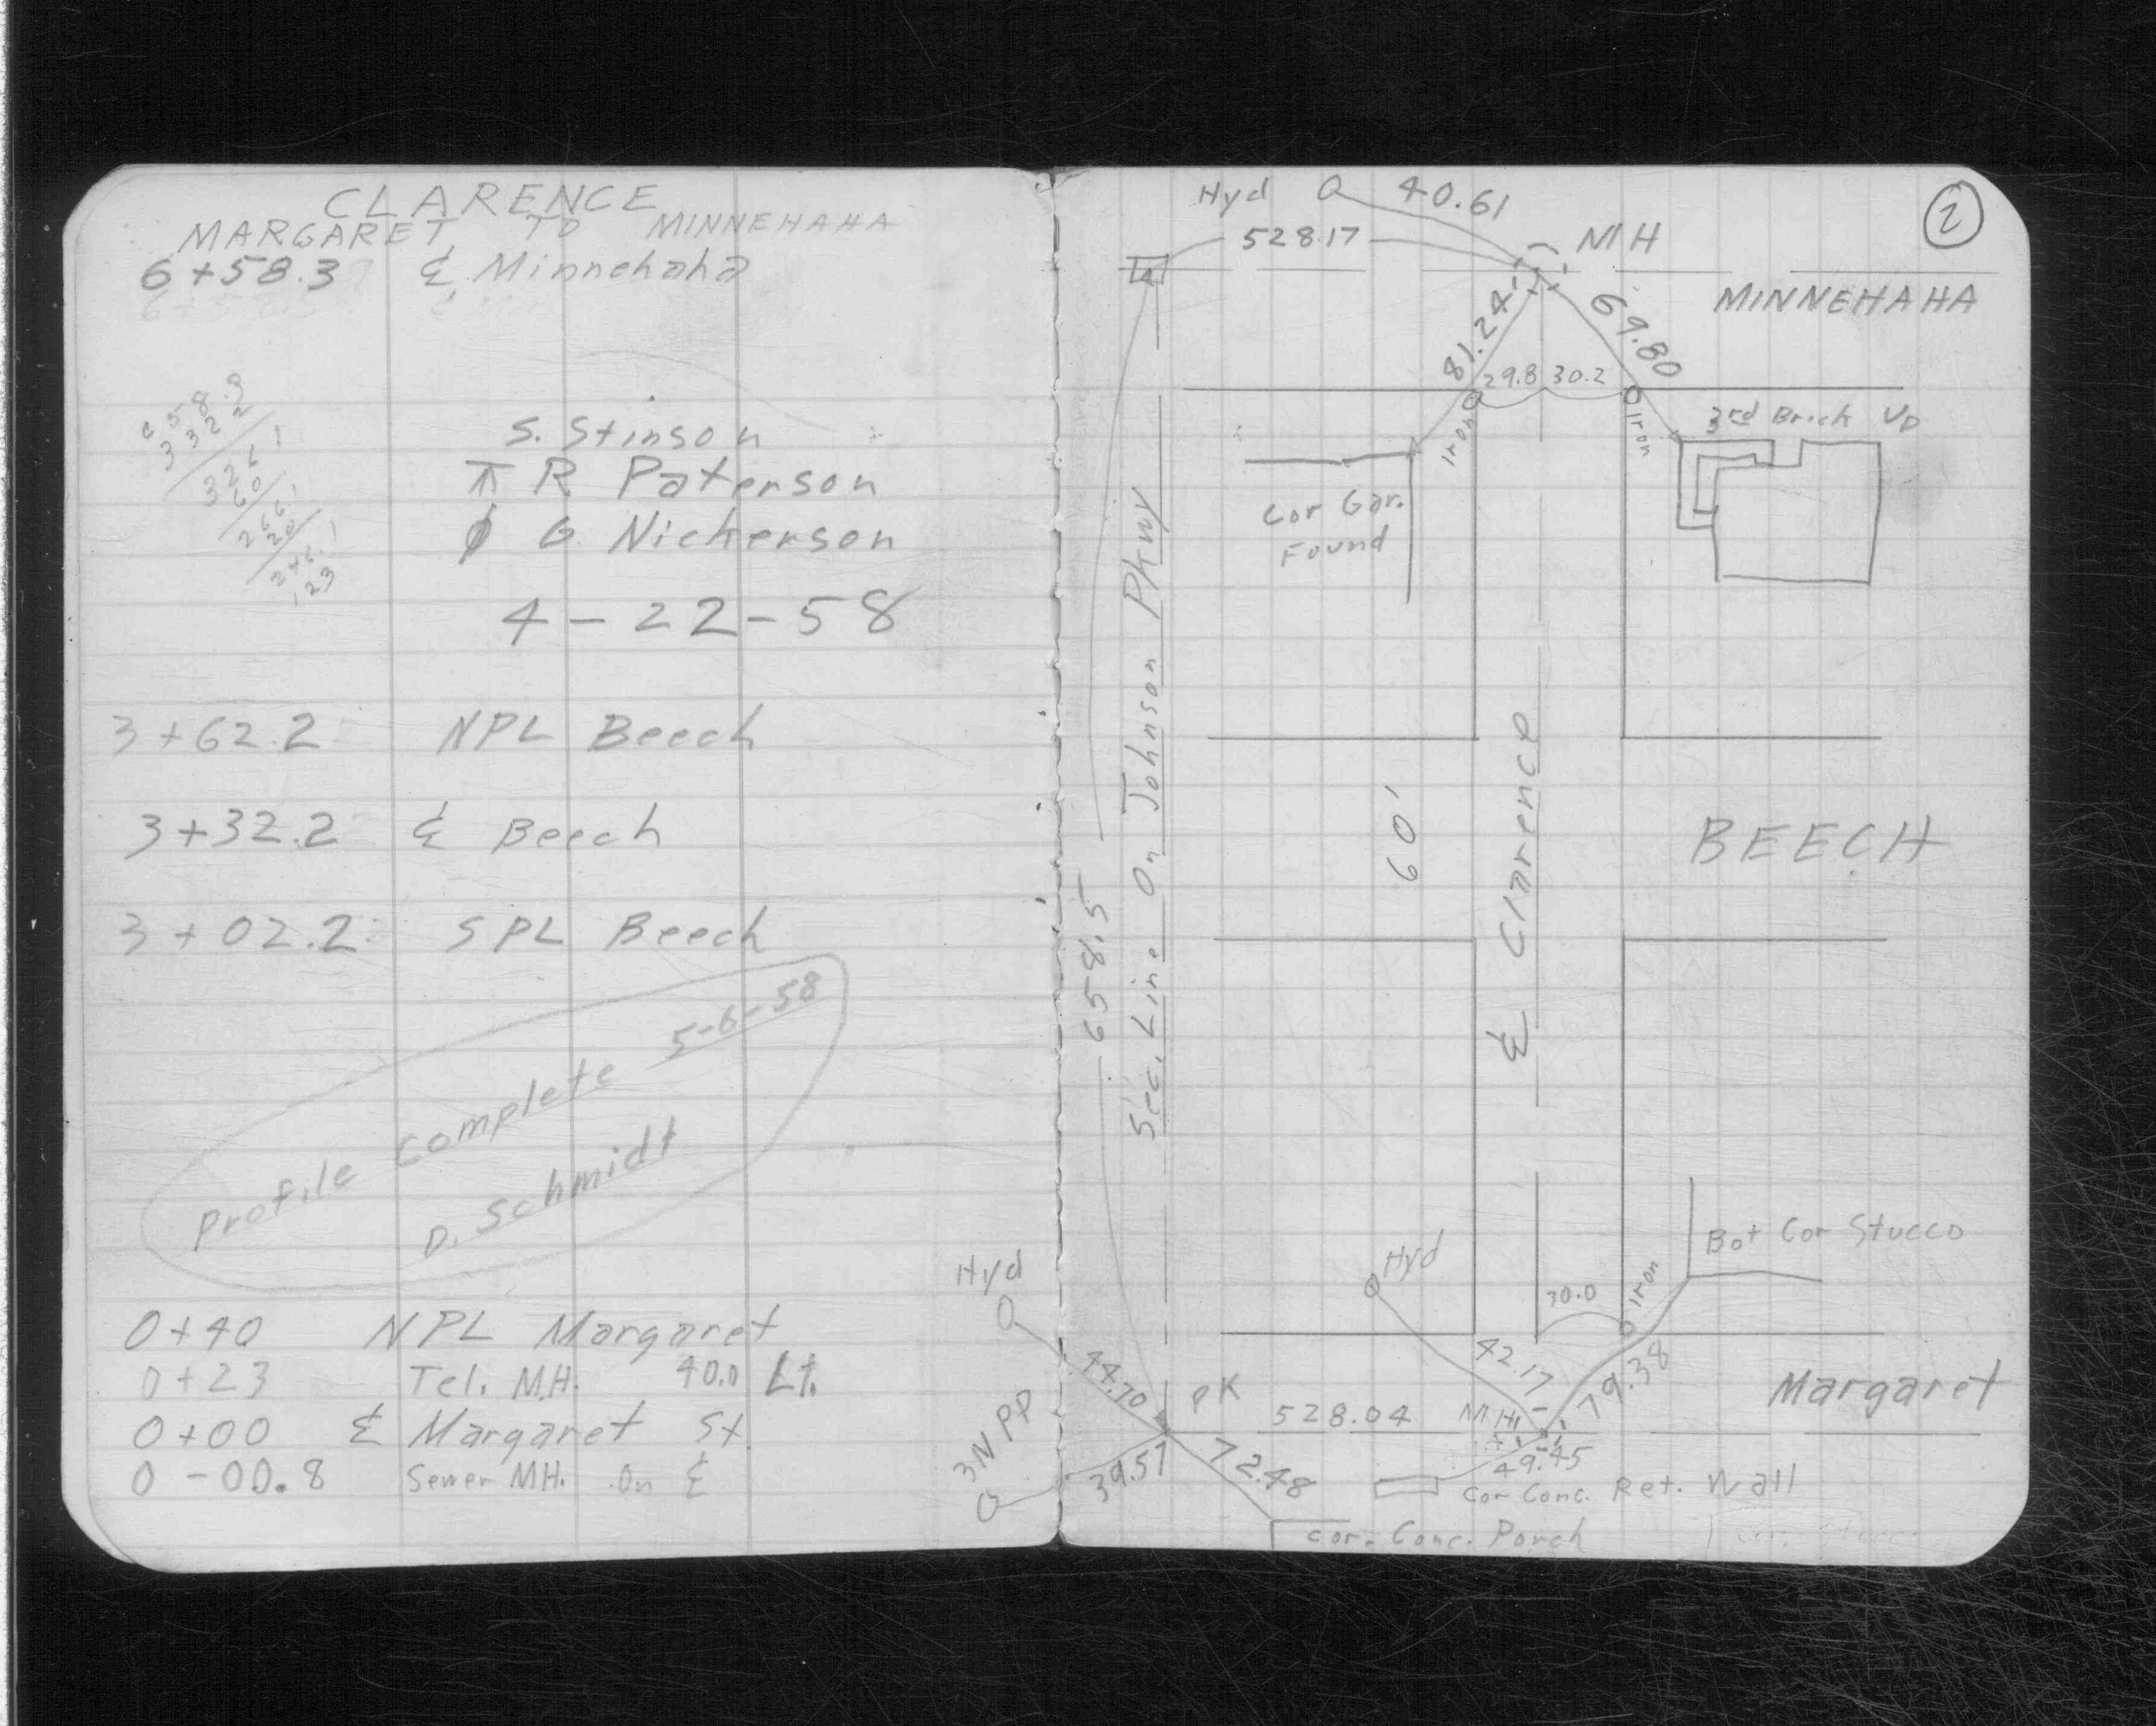 CLARENCE
MARGARET TO MINNEHAHA
6+58.3 ℄ Minnehaha
658.3
332.2
326.1
60
266.1
20
246.1
123
S. Stinson
⊼ R Paterson
ϕ G. Nickerson
4-22-58
3+62.2 NPL Beech
3+32.2 ℄ Beech
3+02.2 SPL Beech
Profile complete 5-6-58
D. Schmidt
0+40 NPL Margaret
0+23 Tel. M.H. 40.0 Lt.
0+00 ℄ Margaret St
0-00.8 Sewer MH. On ℄
Hyd
44.70
3N PP
39.57
2
Hyd 40.61
528.17 MH
MINNEHAHA
81.24
69.80
29.8 30.2
Iron
Iron
3rd Brick Up
Cor Gar.
Found
658.5
Sec. Line On Johnson Pkwy
60'
℄ Clarence
BEECH
Hyd
Bot Cor Stucco
30.0
Iron
42.17
79.38
Margaret
PK 528.04 MH
72.48
49.45
Cor Conc. Ret. Wall
Cor. Conc. Porch